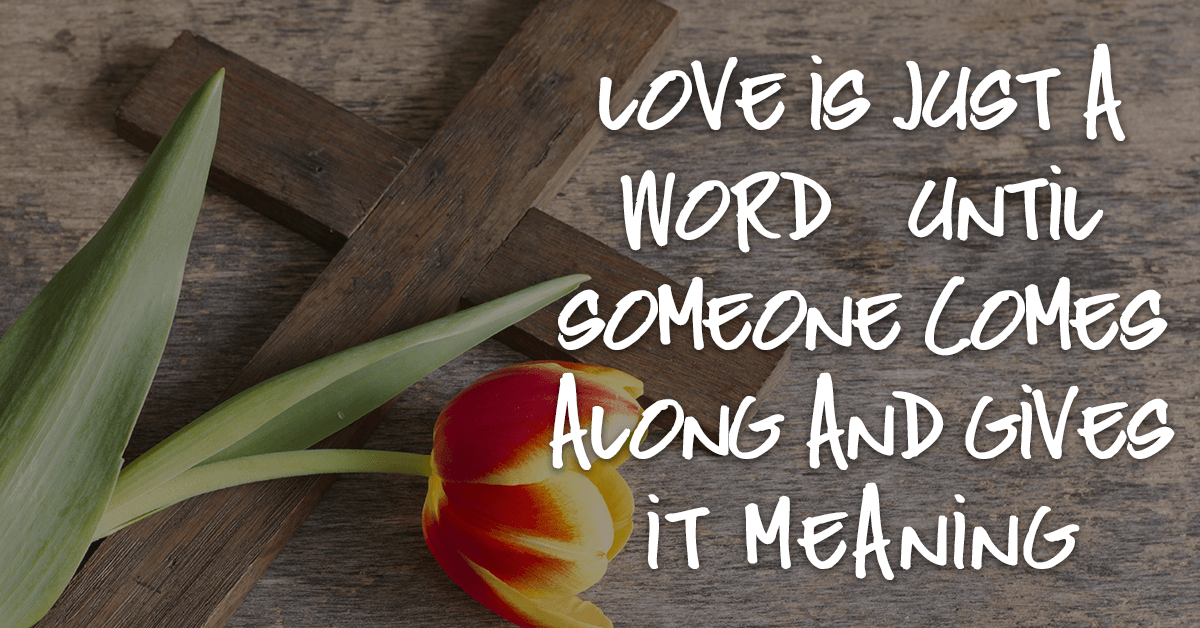 LOVE IS JUST A
WORD UNTIL
SOMEONE COMES
ALONG AND GIVES
IT MEANING